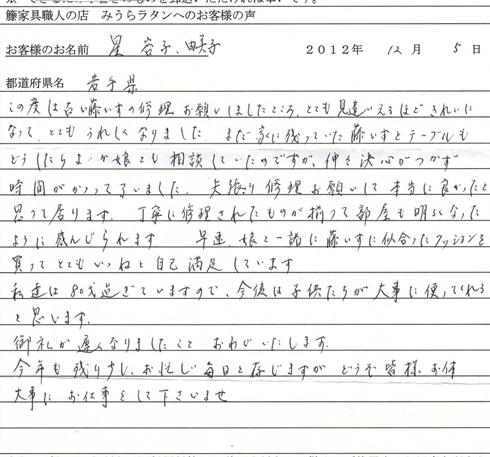 籐家具職人の店　みうらラタンへのお客様の声
お客様のお名前　星　岩子、由美子　　2012年　12月　5日
都道府県名　岩手県
この度は古い藤いすの修理お願いしましたところ、とても見違いえるほどきれいに
なって、とてもうれしくなりました　まだ家に残っていた藤いすとテーブルも
どうしたらよいか娘とも相談していたのですが、仲々決心がつかず
時間がかかって了いました、夫張り修理お願いして本当に良かったと
思って居ります。　丁寧に修理されたものが揃って部屋も明るくなった
ように感んじられます　早速、娘と一諸に藤いすに似合ったクッションを
買ってとてもいゝねと自己満足しています
私達は80才過ぎていますので、今後は子供たちが大事に使ってくれる
と思います、
御礼が遅くなりましたこと　おわびいたします、
今年も残り少し、お忙しい毎日と存じますが　どうぞ皆様、お体
大事に　お仕事をして下さいませ